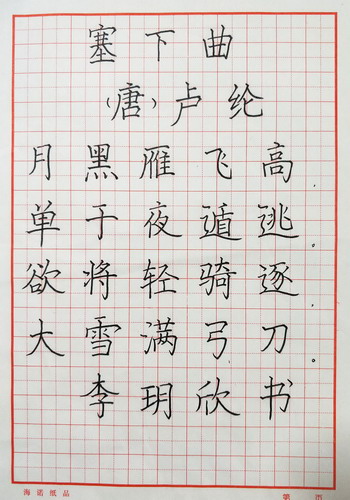 塞下曲
（唐）卢纶
月黑雁飞高.
单于夜遁逃。
欲将轻骑逐
大雪满弓刀。
李玥欣书
海诺纸品 第 页